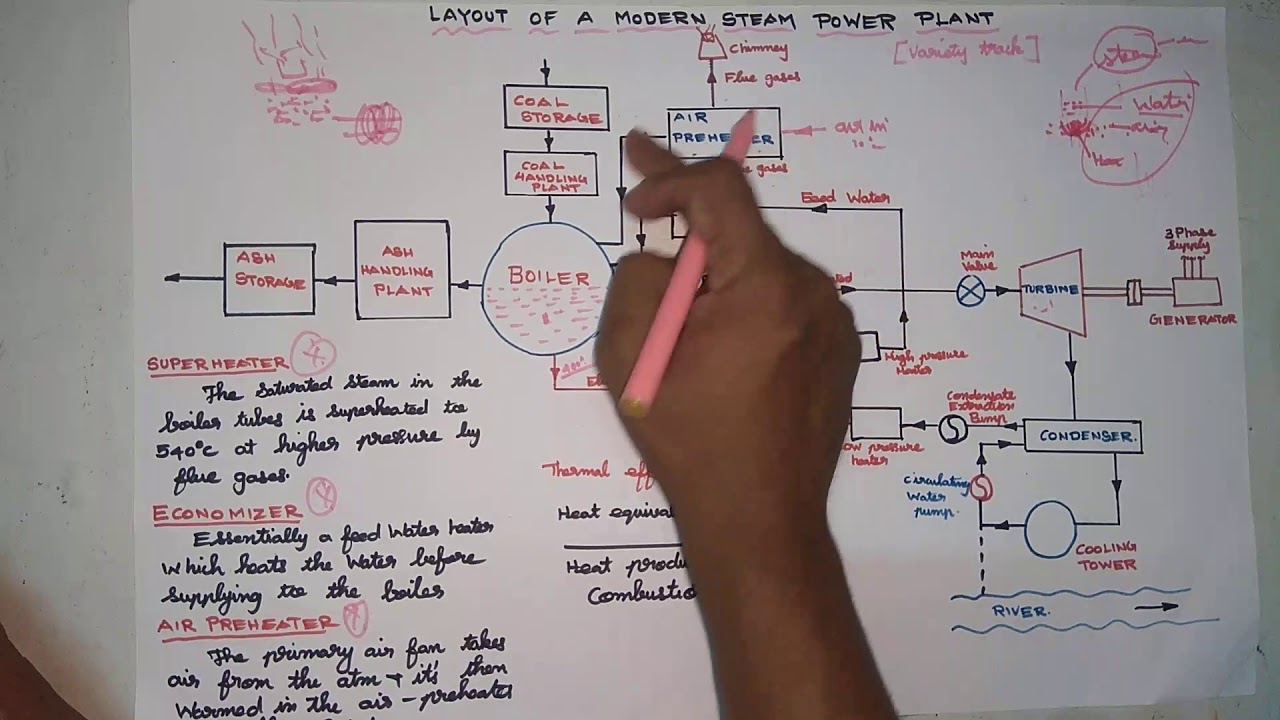 LAYOUT OF A MODERN STEAM POWER PLANT
[Variety track]
chimney
Flue gases
COAL
STORAGE
AIR
air in
COAL
HANDLING
PLANT
gases
Feed Water
steam
Water
ASH
STORAGE
ASH
HANDLING
PLANT
BOILER
Main
Valve
TURBINE
3 Phase
Supply
GENERATOR
High pressure
Heater
Condensate
Extraction
Pump
pressure
heater
CONDENSER.
Circulating
Water
pump.
COOLING
TOWER
RIVER.
SUPERHEATER
The saturated steam in the
boiler tubes is superheated to
540°c at higher pressure by
flue gases.
ECONOMIZER
Essentially a feed Water heater
which heats the Water before
supplying to the boiler
AIR PREHEATER
The primary air fan takes
air from the atm & it's then
Warmed in the air-preheater
Thermal
Heat
Heat